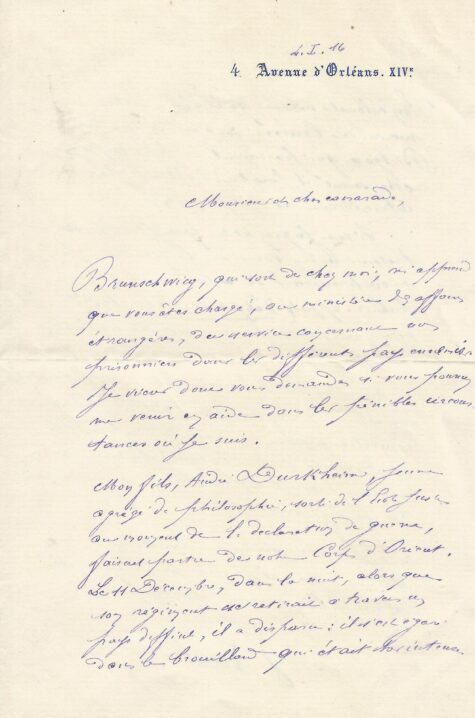 4. I. 16
4. Avenue d'Orléans. XIVe
Monsieur et cher camarade,
Brunschwicg, qui sort de chez moi, m'apprend
que vous êtes chargé, au ministère des affaires
étrangères, du service concernant nos
prisonniers dans les différents pays
Je viens donc vous demander si vous pouvez
me venir en aide dans les pénibles circons
tances où je suis.
Mon fils, André Durkheim, jeune
agrégé de philosophie, sorti de l'Ecole
au moment de la déclaration de guerre,
faisait partie de notre Corps d'Orient.
Le 11 Décembre, dans la nuit, alors que
son régiment se retirait à travers un
pays difficile, il a disparu : il s'est égaré
dans le brouillard qui était très intense